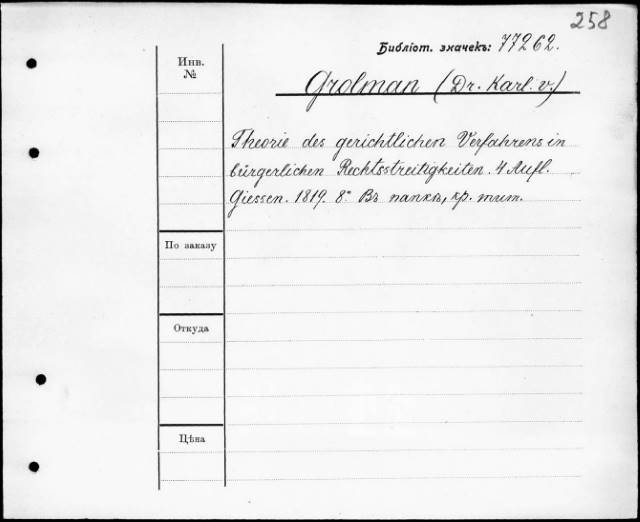 258
Библіот. значекъ: 77262.
Инв.
№
Grolman (Dr. Karl. v.)
Theorie des gerichtlichen Verfahrens in
bürgerlichen Rechtsstreitigkeiten. 4 Aufl.
Giessen. 1819. 8° Въ папкѣ, кр. тит.
По заказу
Откуда
Цѣна